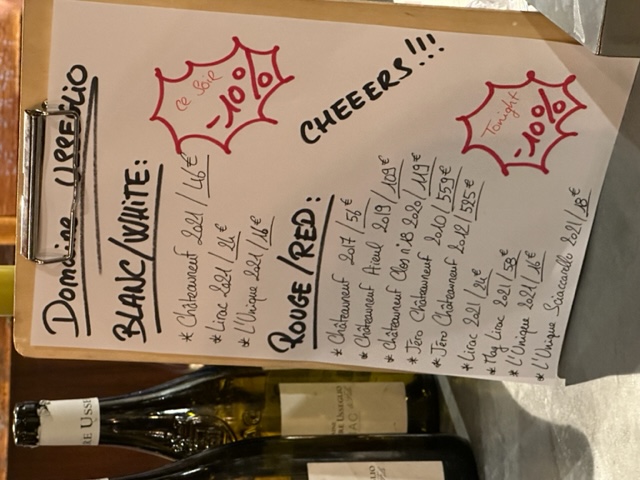 RE USSEG
Domaine USSEGLIO
BLANC/WHITE:
* Châteauneuf 2021/46€
* Lirac 2021/24€
* L'Unique 2021/16€
ce soir
-10%
ROUGE/RED:
* Châteauneuf 2017/56€
* Châteauneuf Aïeul 2019/109€
* Châteauneuf Clos n°18 2020/119€
* Jéro Châteauneuf 2010/559€
* Jéro Châteauneuf 2012/525€
* Lirac 2021/24€
* Mag Lirac 2021/58€
* L'Unique 2021/16€
* L'Unique Sciaccarello 2021/18€
CHEEERS!!!
Tonight
-10%
RE USSEGLIO